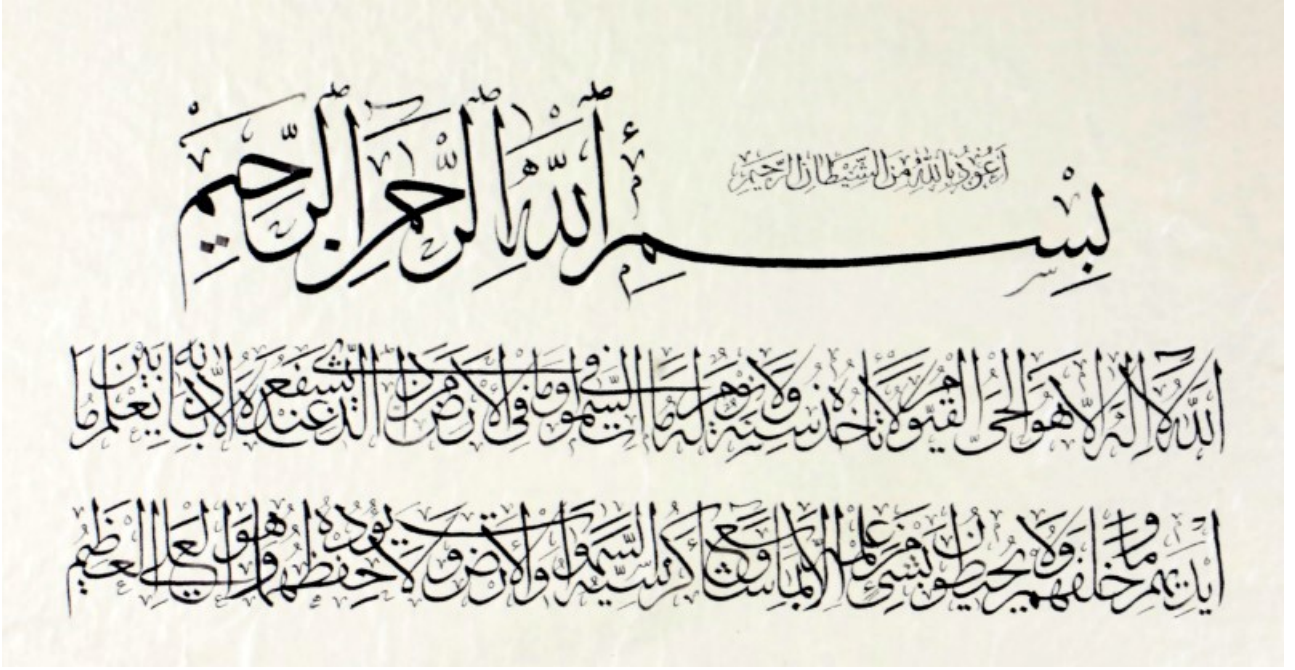 اَعُوذُ بِاللهِ مِنَ الشَّيْطَانِ الرَّجِيمِ
بِسْمِ ٱللهِ ٱلرَّحْمٰنِ ٱلرَّحِيمِ
اَللهُ لَا اِلٰهَ اِلَّا هُوَ الْحَىُّ الْقَيُّومُ لَا تَأْخُذُهُ سِنَةٌ وَلَا نَوْمٌ لَهُ مَا فِى السَّمٰوَاتِ وَمَا فِى الْاَرْضِ مَنْ ذَا الَّذِى يَشْفَعُ عِنْدَهُ اِلَّا بِاِذْنِهِ يَعْلَمُ مَا بَيْنَ
اَيْدِيهِمْ وَمَا خَلْفَهُمْ وَلَا يُحِيطُونَ بِشَىْءٍ مِنْ عِلْمِهِ اِلَّا بِمَا شَاءَ وَسِعَ كُرْسِيُّهُ السَّمٰوَاتِ وَالْاَرْضَ وَلَا يَؤُدُهُ حِفْظُهُمَا وَهُوَ الْعَلِىُّ الْعَظِيمُ